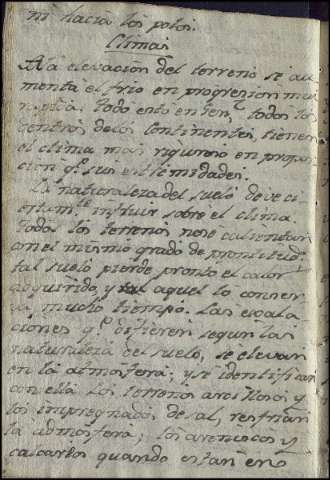 ni hacia los polos.
Climas
A la elevacion del terreno se au
menta el frio en progresion
todo esto en todos los
centros delos continentes, tienen
el clima mas riguroso en propor
cion qe. sus extremidades.
La naturaleza del suelo deve ci
ertamte. influir sobre el clima.
todos los terrenos nose calientan
con el mismo grado de prontitud:
tal suelo pierde pronto el calor
adquirido, y tal aquel lo conser
va mucho tiempo. Las exala
ciones qe. difieren segun las
naturaleza del suelo, se elevan
en la atmosfera; y se identifican
con ella los terrenos arcillosos y
los impregnados de sal, resfrian
la atmosfera; los arenosos y
calcarios quando estan en